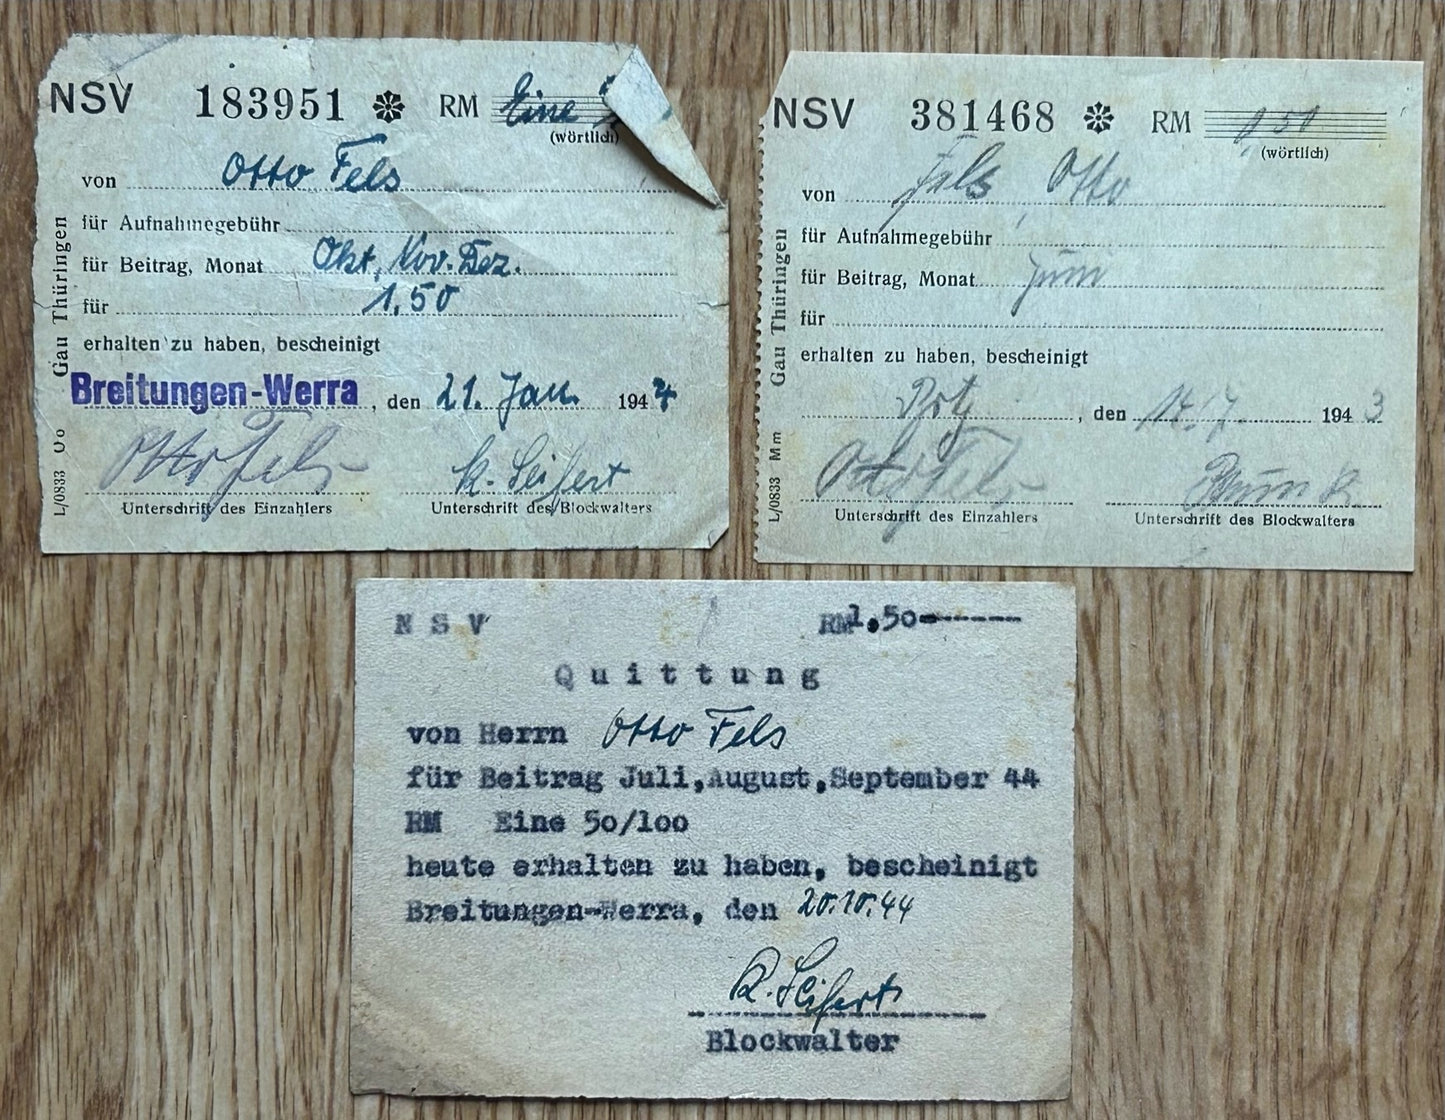 NSV 183951 RM Eine
(wörtlich)
von Otto Fels
für Aufnahmegebühr
für Beitrag, Monat Okt, Nov. Dez.
für 1,50
erhalten zu haben, bescheinigt
Breitungen-Werra, den 21. Jan. 1944
Otto Fels K. Seifert
Unterschrift des Einzahlers Unterschrift des Blockwalters
Gau Thüringen
L/0833 Uo
NSV 381468 RM 0,50
(wörtlich)
von Fels Otto
für Aufnahmegebühr
für Beitrag, Monat Juni
für
erhalten zu haben, bescheinigt
, den 14.7. 1943
Otto Fels
Unterschrift des Einzahlers Unterschrift des Blockwalters
Gau Thüringen
L/0833 Mm
N S V RM 1.50-------
Quittung
von Herrn Otto Fels
für Beitrag Juli,August,September 44
RM Eine 50/100
heute erhalten zu haben, bescheinigt
Breitungen-Werra, den 20.10.44
K. Seifert
Blockwalter